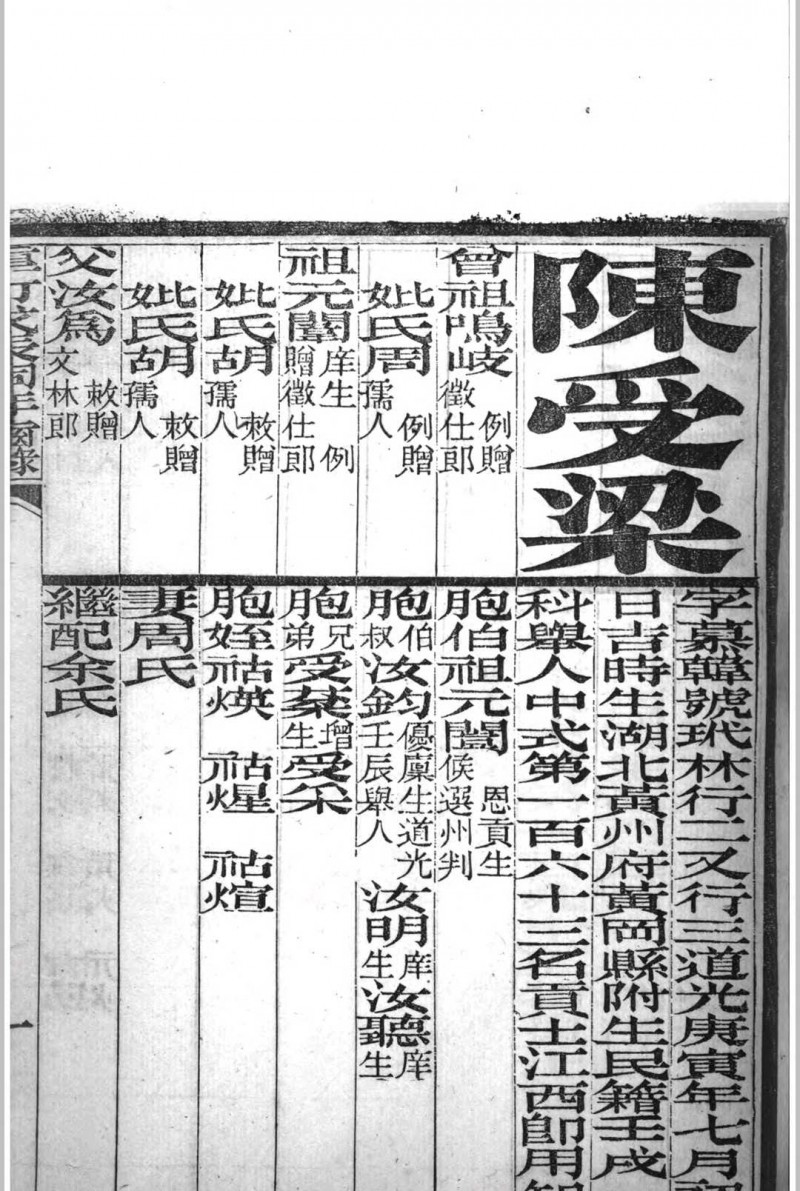 陳受梁
曾祖鳴岐 例贈徵仕郎
妣氏周 例贈孺人
祖元闓 庠生 例贈徵仕郎
妣氏胡 敕贈孺人
妣氏胡 敕贈孺人
父汝爲 敕贈文林郎
字慕韓號玳林行二又行三道光庚寅年七月初
日吉時生湖北黃州府黃岡縣附生民籍壬戌
科舉人中式第一百六十三名貢士江西卽用知
胞伯祖元誾 恩貢生候選州判
胞伯叔汝鈞 優廩生道光壬辰舉人 汝明 庠生 汝聽 庠生
胞兄弟受棻 增生 受采
胞姪祜煐 祜煋 祜煊
妻周氏
繼配余氏
一